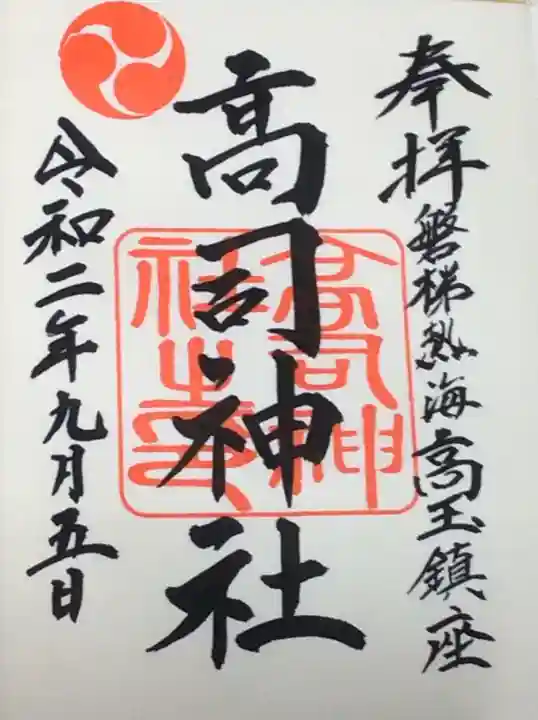 奉拝 磐梯熱海高玉鎮座
高司神社
高司神社之印
令和二年九月五日